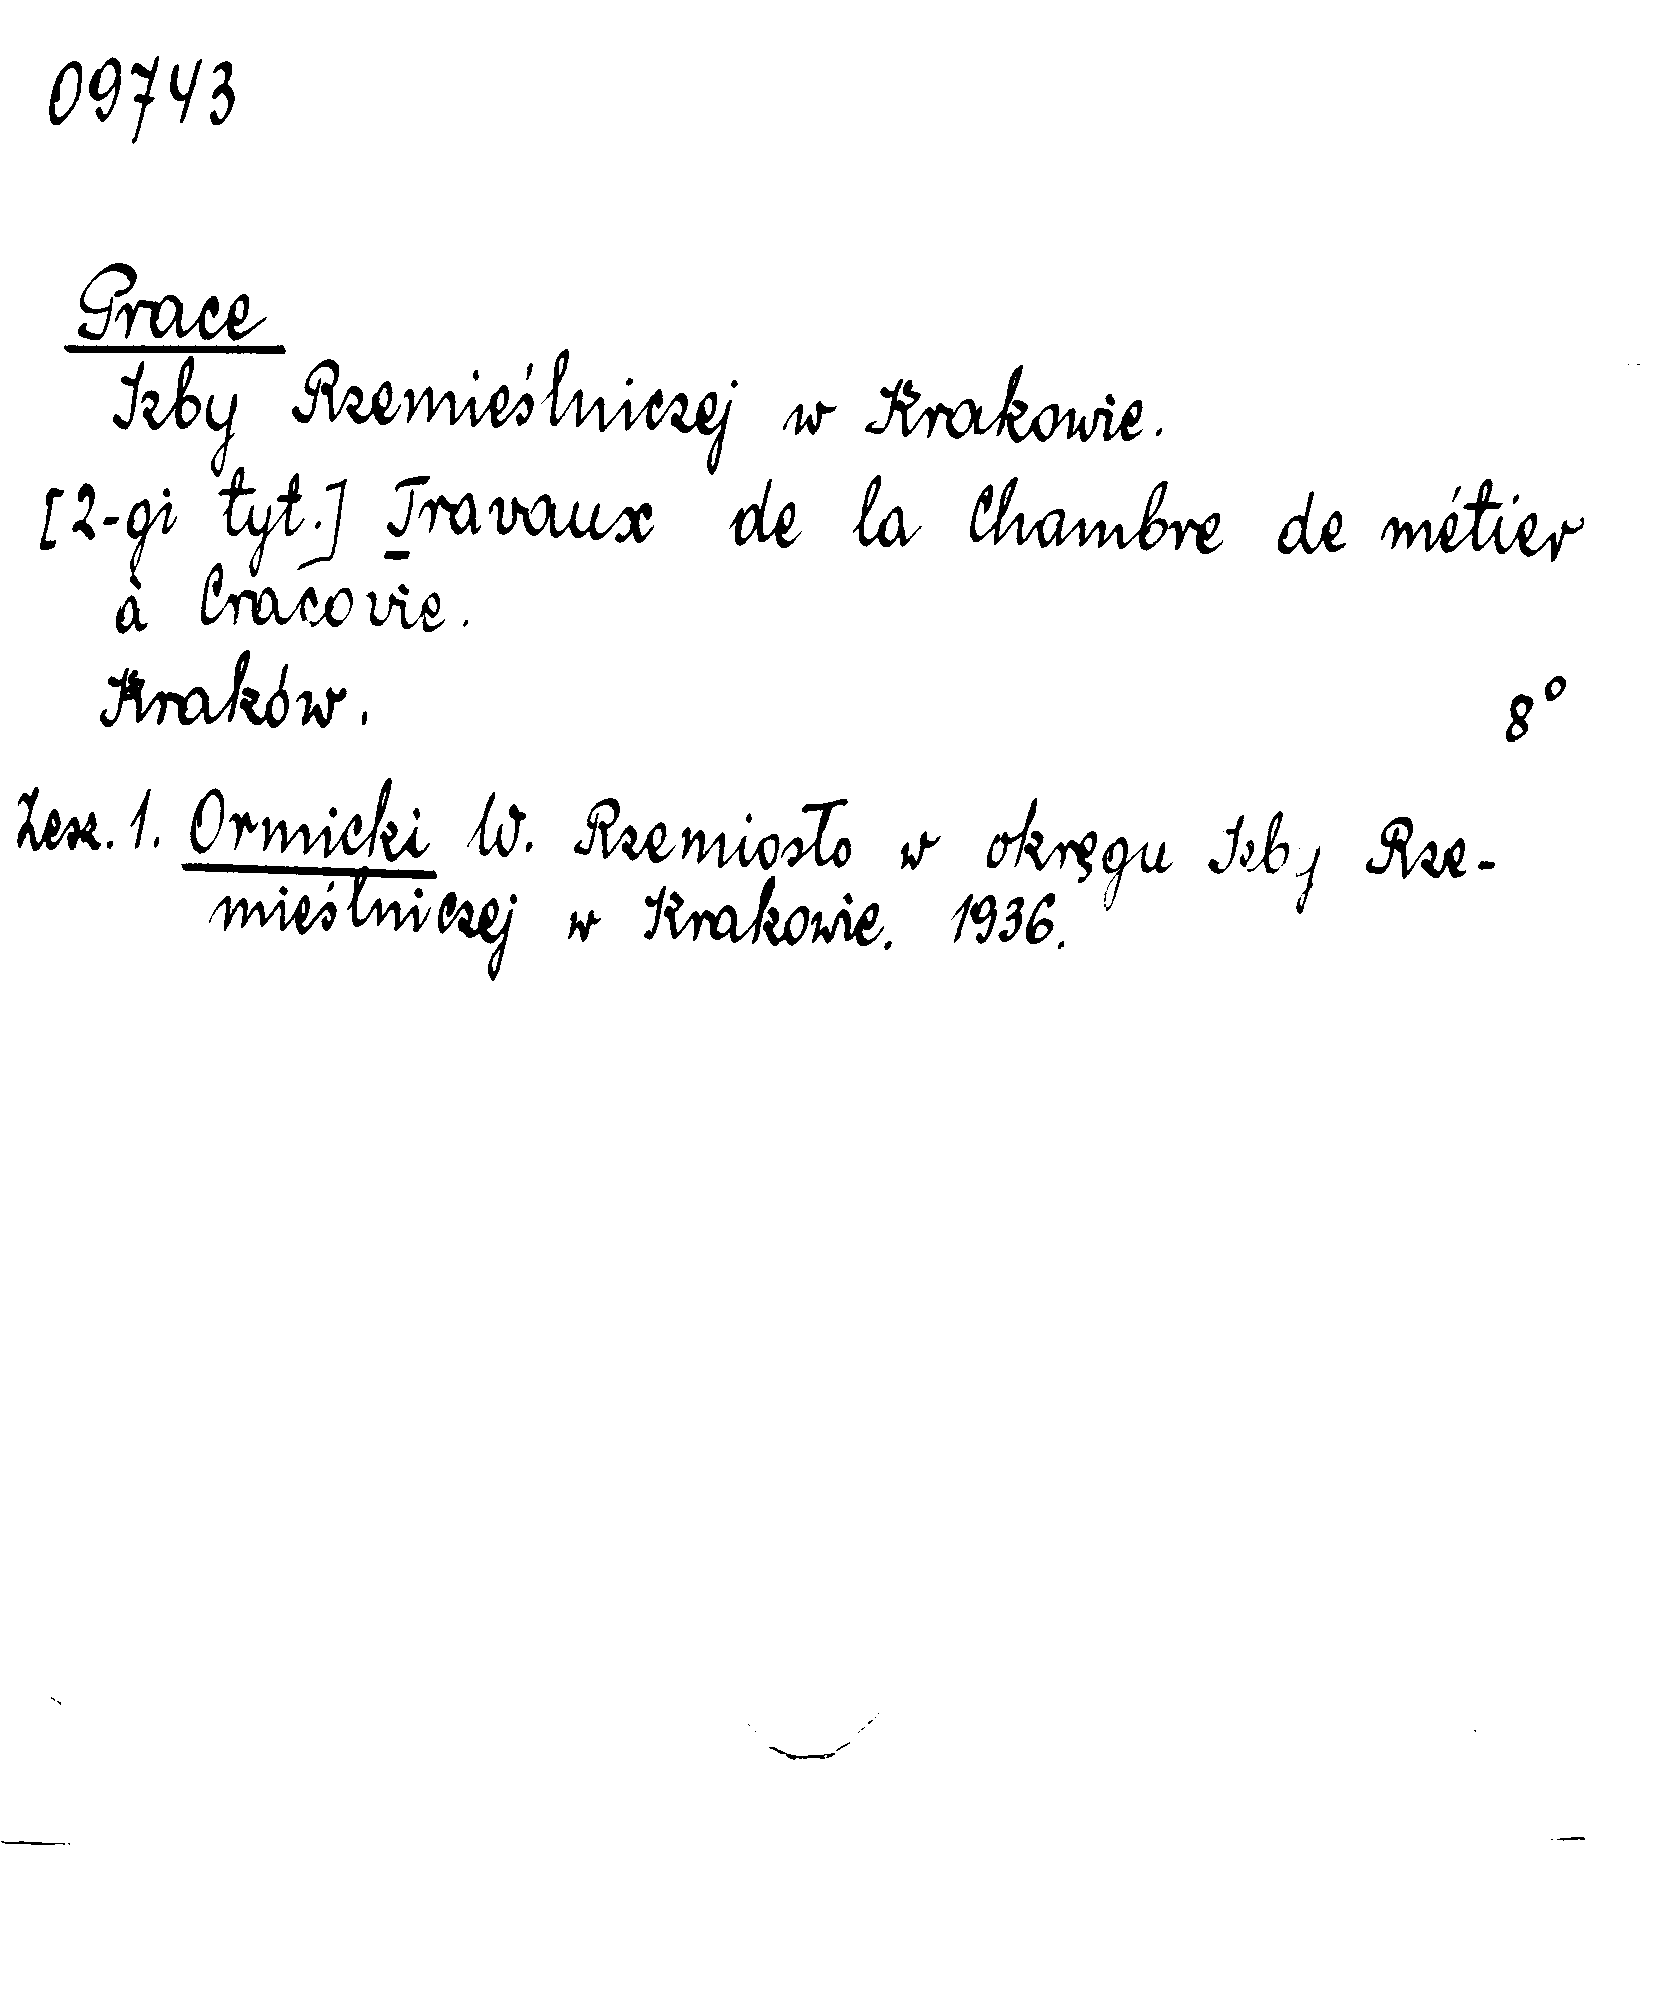 09743
Prace
Izby Rzemieślniczej w Krakowie.
[2-gi tyt.] Travaux de la Chambre de métier
à Cracovie.
Kraków. 8°
Zesz. 1. Ormicki W. Rzemiosło w okręgu Izby Rze-
mieślniczej w Krakowie. 1936.